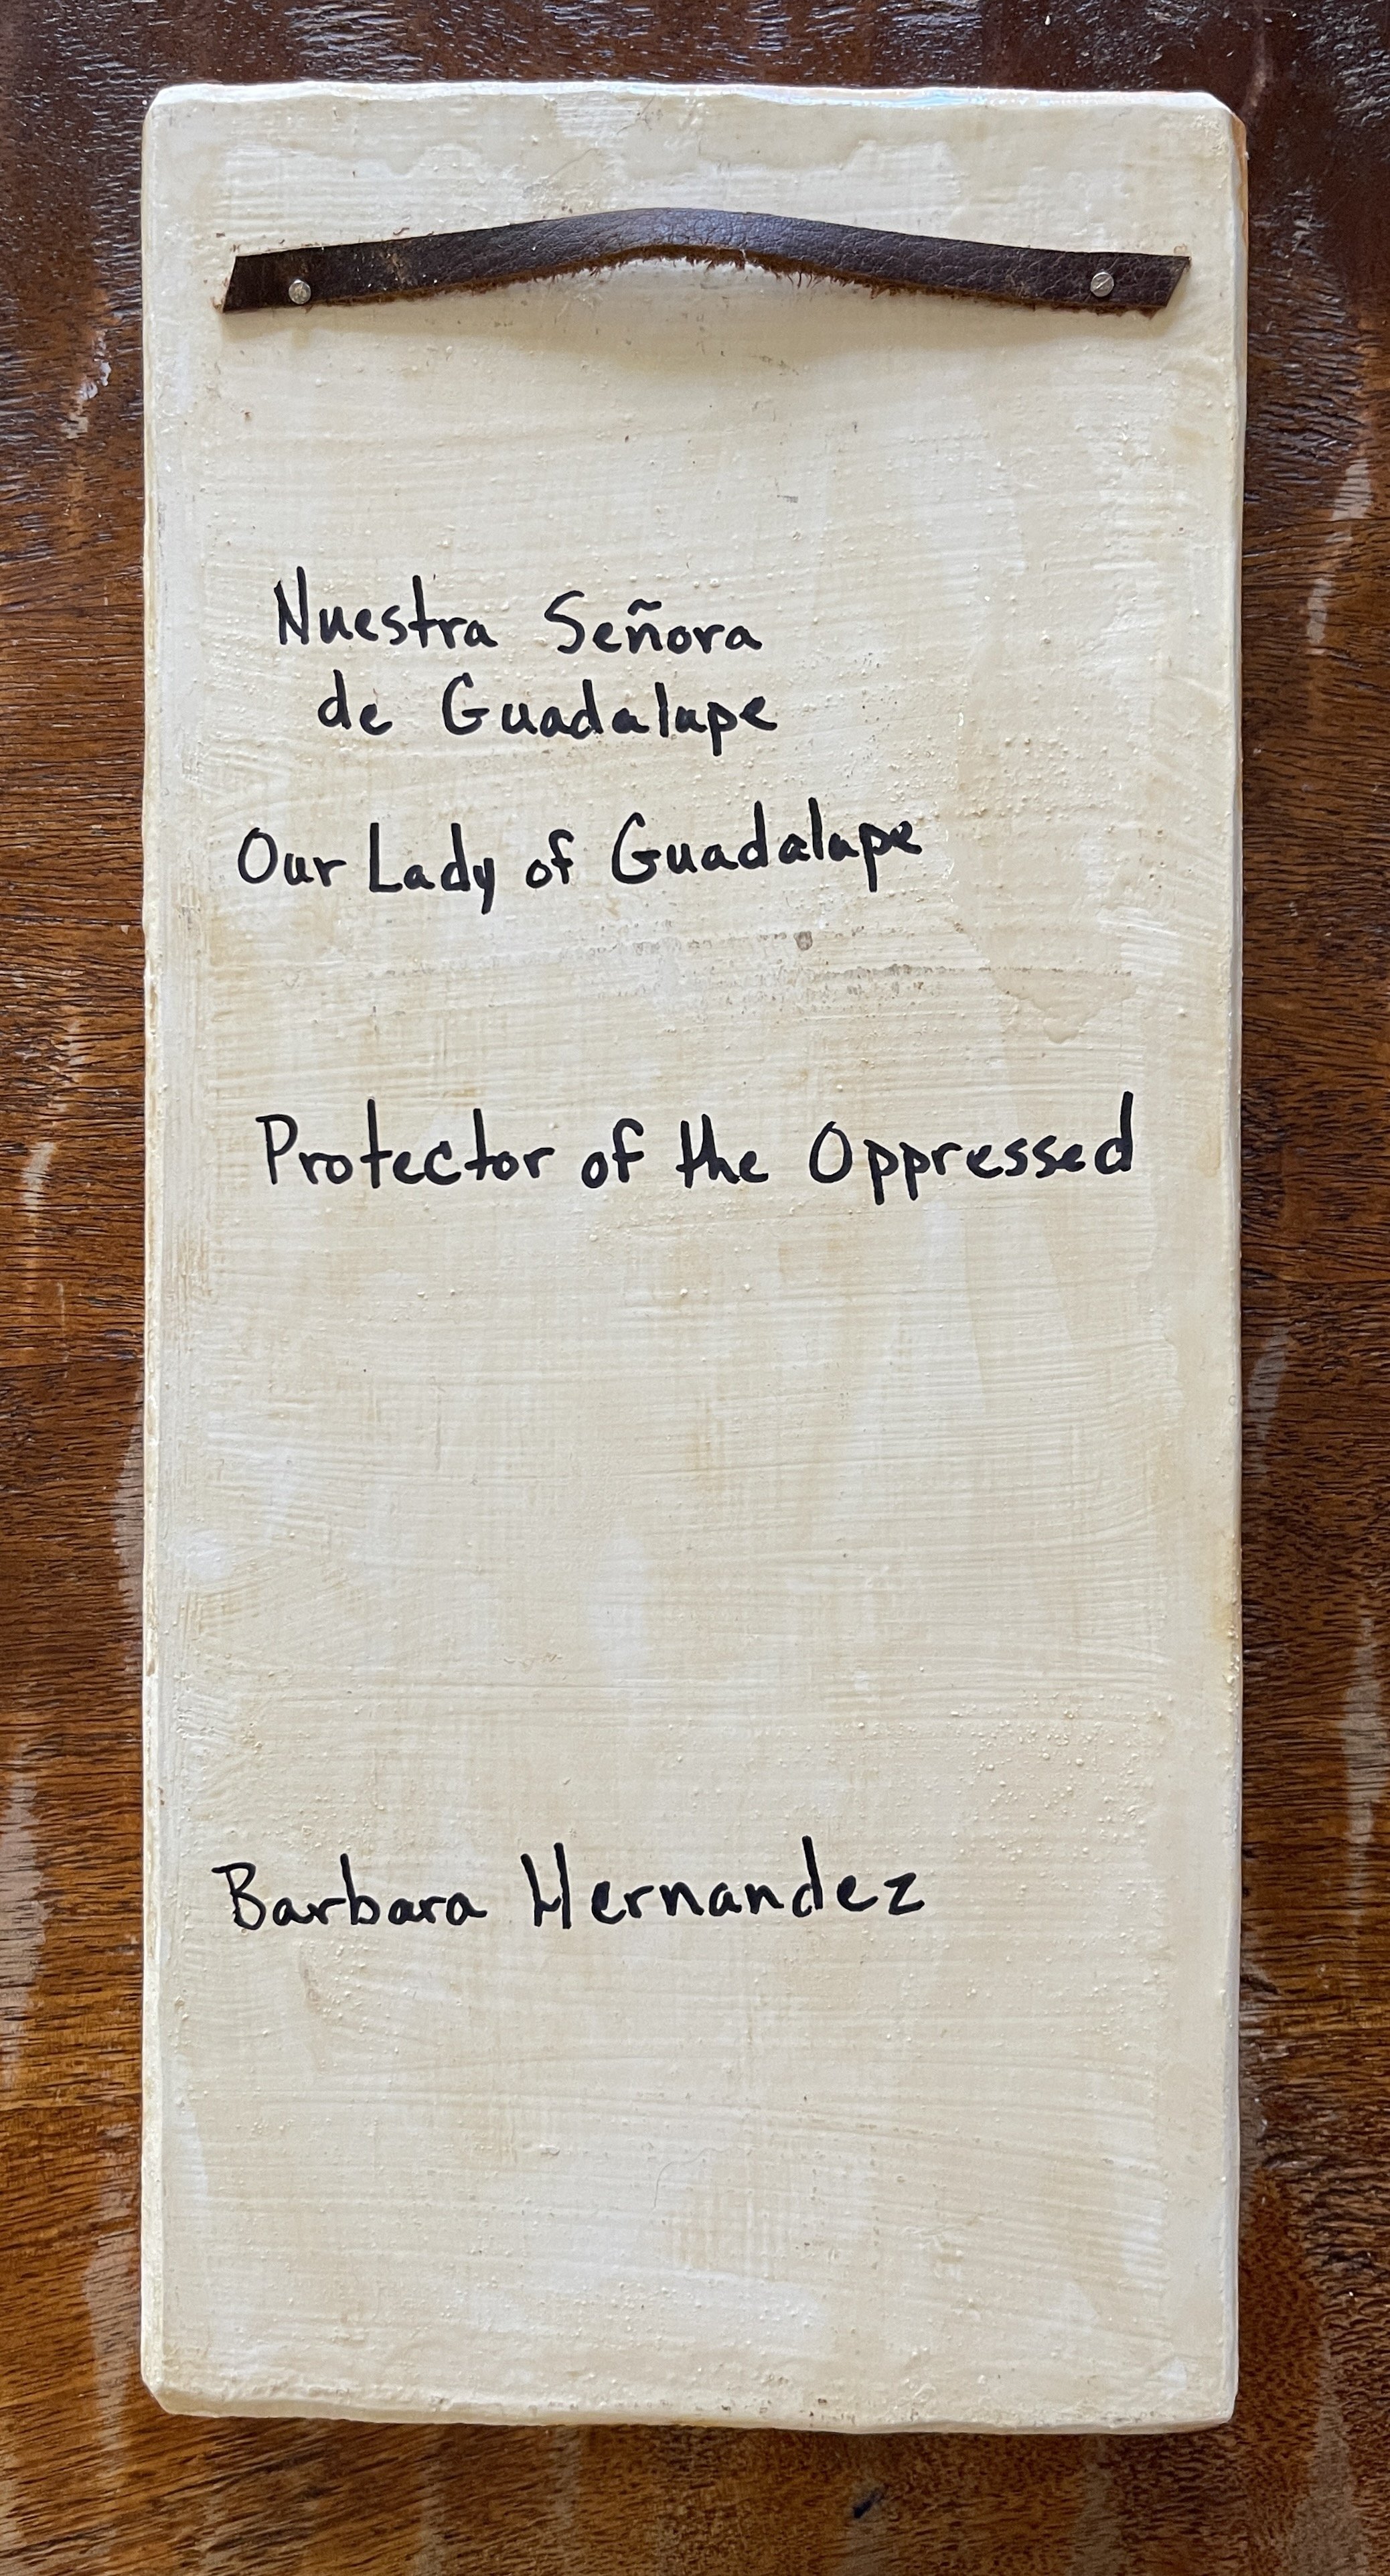 Nuestra Señora
de Guadalupe
Our Lady of Guadalupe
Protector of the Oppressed
Barbara Hernandez